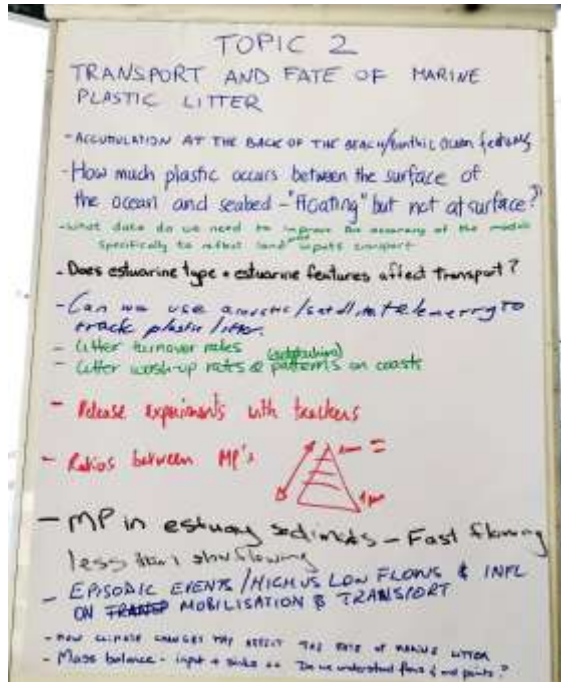 TOPIC 2
TRANSPORT AND FATE OF MARINE
PLASTIC LITTER
- ACCUMULATION AT THE BACK OF THE BEACH/benthic ocean features
- How much plastic occurs between the surface of
the ocean and seabed - "floating" but not at surface?
- What data do we need to improve the accuracy of the models
specifically to reflect land inputs transport
- Does estuarine type + estuarine features affect transport?
- Can we use acoustic/satellite telemetry to
track plastic litter.
- Litter turnover rates
- Litter wash-up rates & patterns on coasts
- Release experiments with trackers
- Ratios between MP's
- MP in estuary sediments - Fast flowing
less than slow flowing
- EPISODIC EVENTS/HIGH VS LOW FLOWS & INFL
ON MOBILISATION & TRANSPORT
- HOW CLIMATE CHANGES MAY AFFECT THE FATE OF MARINE LITTER
- Mass balance - input + sinks Do we understand flows & end points?